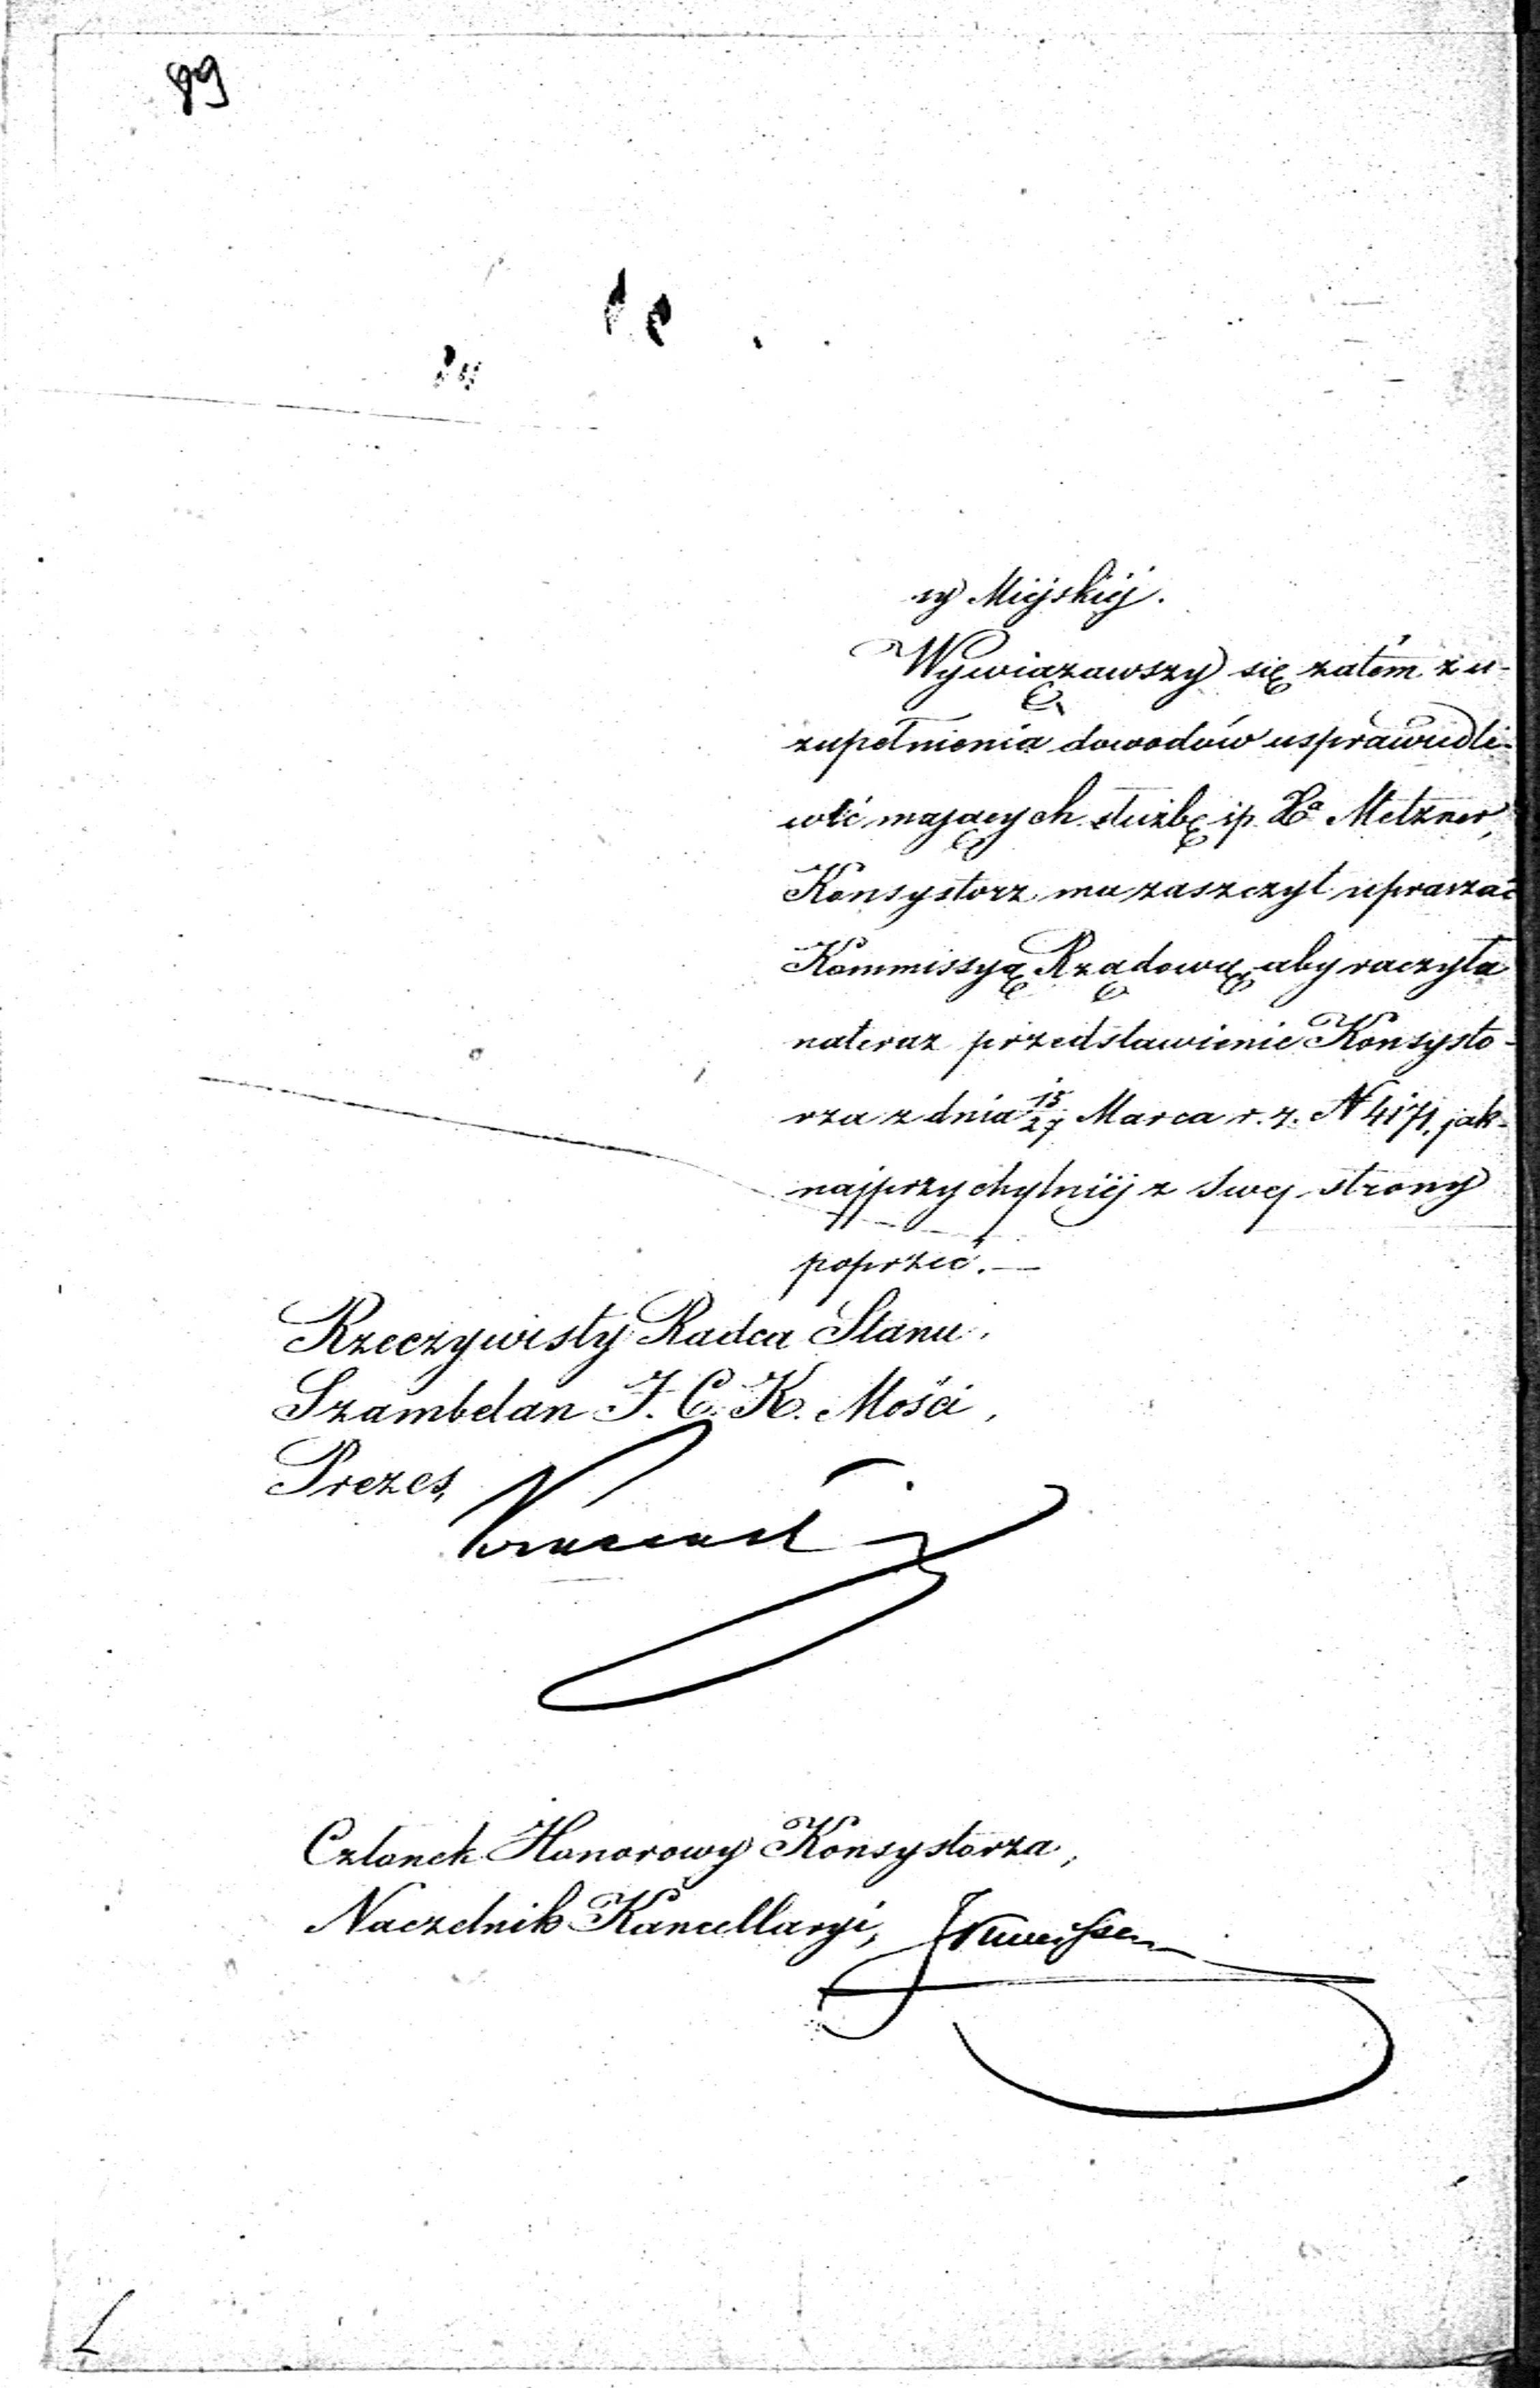 89
ry Miejskiéj.
Wywiązawszy się zatém z u-
zupełnienia dowodów usprawiedli-
wić mających służbę śp. Xa Metzner,
Konsystorz ma zaszczyt upraszać
Kommissyą Rządową, aby raczyła
nateraz przedstawienie Konsysto-
rza z dnia 15/27 Marca r. z. N 4171, jak-
najprzychylniéj z swej strony
poprzeć. —
Rzeczywisty Radca Stanu,
Szambelan J. C. K. Mości,
Prezes,
Członek Honorowy Konsystorza,
Naczelnik Kancellaryi,